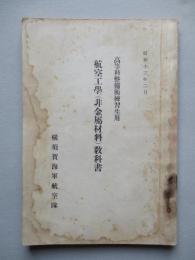 昭和十三年二月
高等科整備術練習生用
航空工學(非金屬材料)教科書
横須賀海軍航空隊